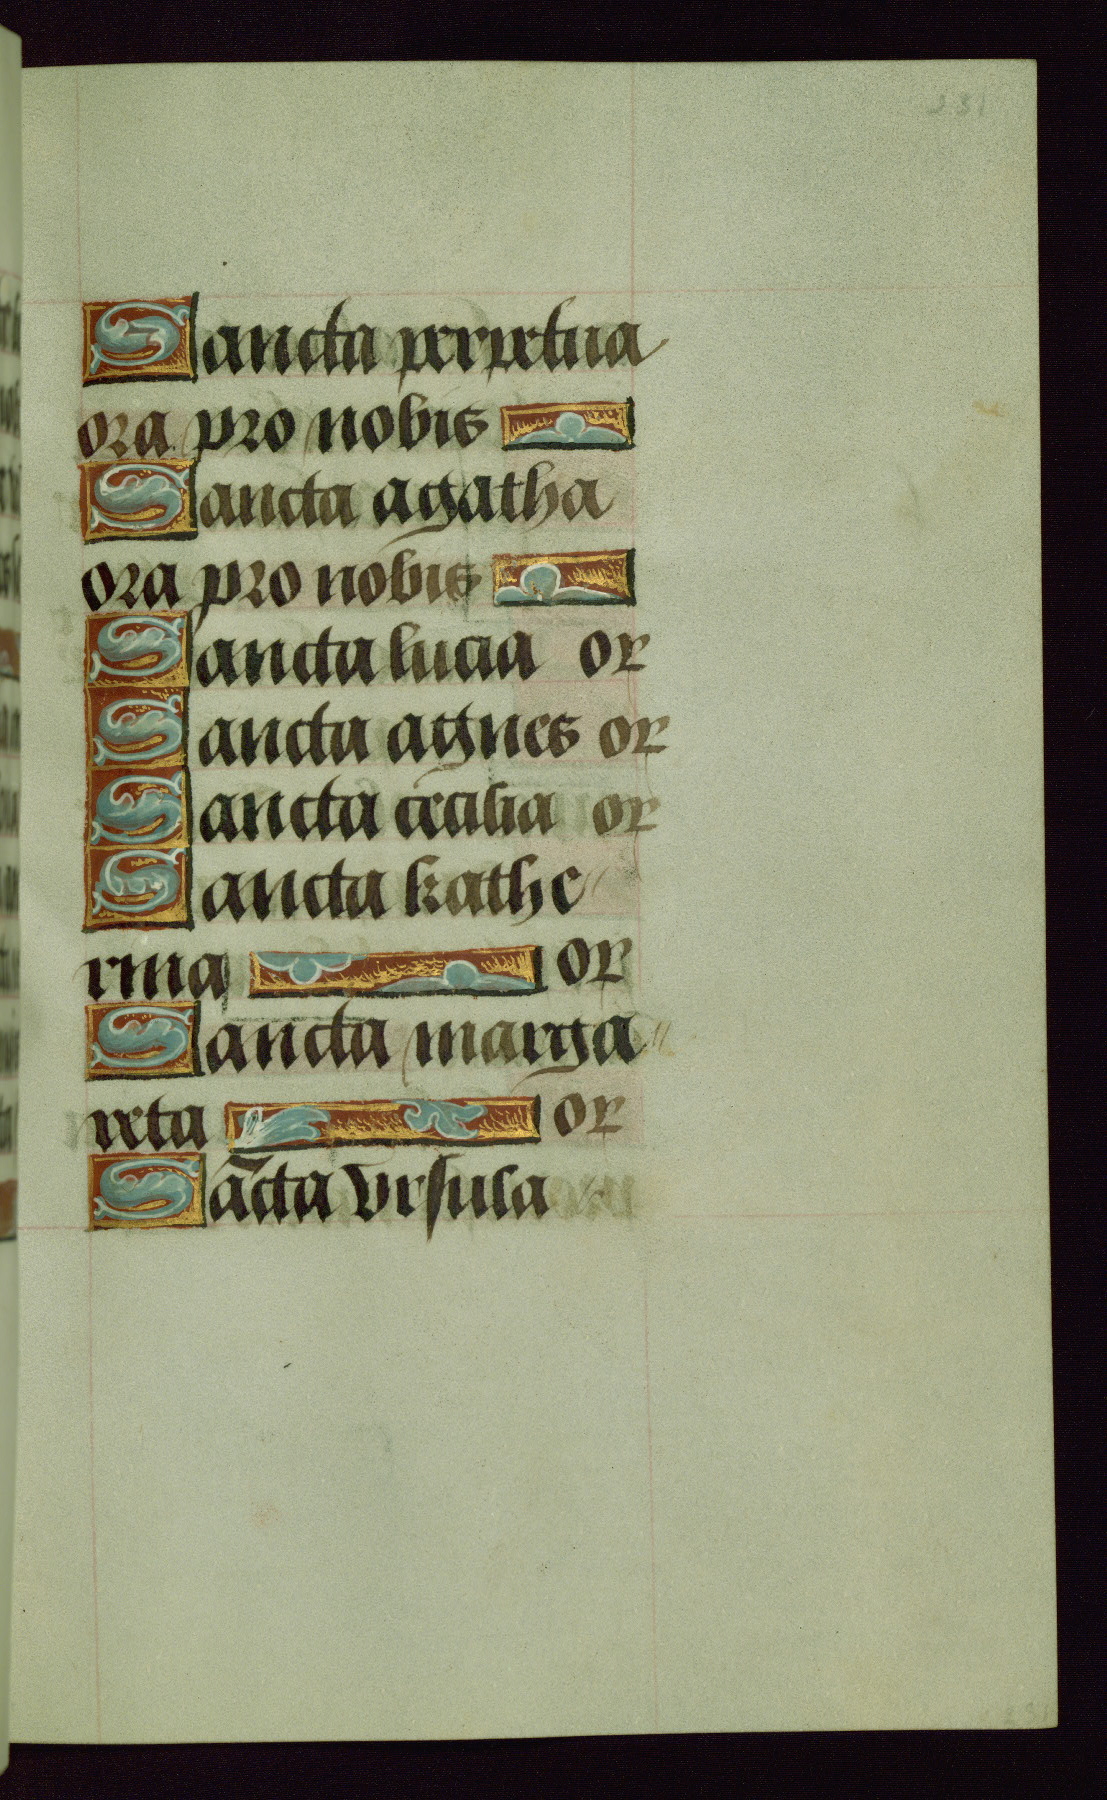 231
Sancta perpetua
ora pro nobis
Sancta agatha
ora pro nobis
Sancta lucia or
Sancta agnes or
Sancta cecilia or
Sancta kathe
rina or
Sancta marga
reta or
Sācta vrsula